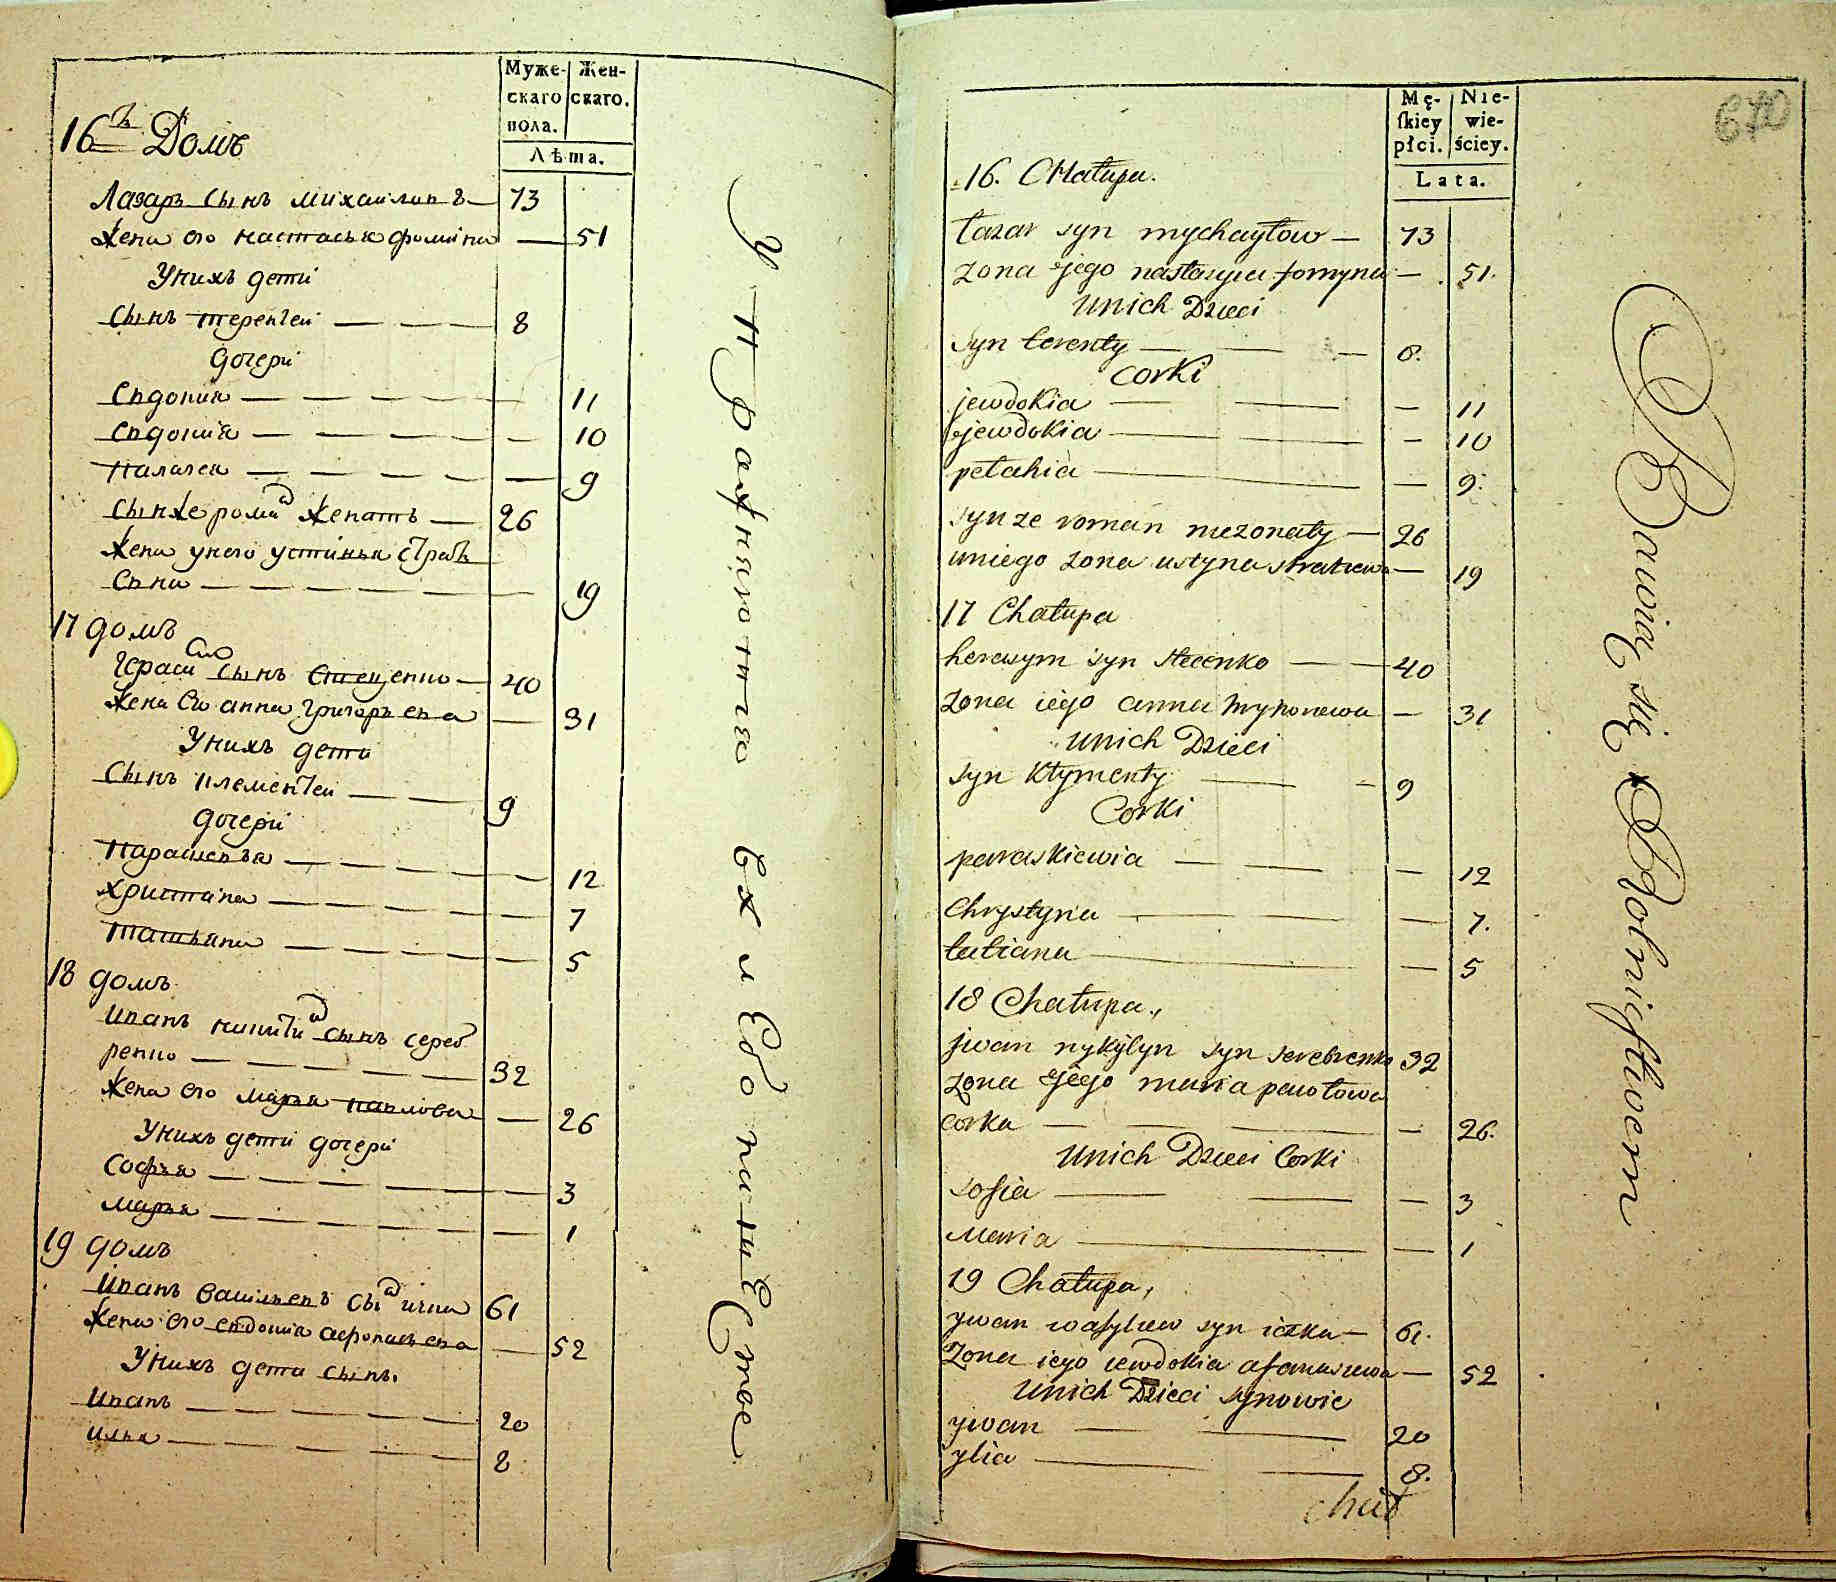 Муже-
скаго
пола.
Жен-
скаго.
Лѣта.
16ъ Домъ
Лазаръ сынъ михаиловъ — 73
жена его настасья фомина — 51
Унихъ дети
сынъ терентеи — — — 8
дочери
Евдокия — — — — 11
Евдокия — — — — 10
палагея — — — — 9
сынже роман женатъ — 26
жена унего устинья
— — — — 19
17 домъ
Герасим сынъ стеценко — 40
жена его анна григорьева — 31
Унихъ дети
сынъ клементеи — — — 9
дочери
Парасковя — — — — 12
христина — — — — 7
татьяна — — — — 5
18 домъ
иванъ никитин сынъ сереб
ренко — — — — 32
жена его марья павлова — 26
Унихъ дети дочери
софья — — — — 3
марья — — — — 1
19 домъ
иванъ васильевъ сын ичка 61
жена его евдокиа афонасьева — 52
Унихъ дети сынъ.
иванъ — — — — 20
илья — — — — 8
Упражняютъся вхлебопашестве
Mę-
ſkiey
płci.
Nie-
wie-
ściey.
Lata.
670
16. CHałupa.
łazar syn mychayłow — 73
zona jego nastazyia fomyna — 51.
unich Dzieci
syn terenty — — — 8.
corki
jewdokia — — — 11
jewdokia — — — 10
pełahia — — 9.
synze roman niezonaty — 26
uniego zona ustyna — 19
17 Chałupa
herasym syn stecenko — — 40
zona iego anna hryhorewa — 31
unich Dzieci
syn kłymenty — — 9
Corki
paraskiewia — — — 12
Chrystyna — — — 7.
tatiana — — 5
18 Chałupa.,
jwan nykytyn syn serebrenko 32
zona jego maria pawłowa
corka — — — 26.
unich Dzieci Corki
sofia — — — 3
Maria — — 1
19 Chałupa,
ywan wasylew syn iczka — 61.
Zona iego iewdokia afanasiewa — 52
unich Dzieci synowie
ywan — — 20
ylia — — 8.
chał
Bawią się Rolnictwem